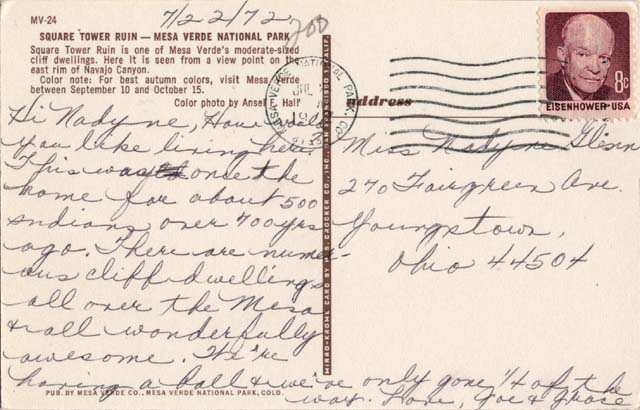 MV-24
7/22/72
200
SQUARE TOWER RUIN — MESA VERDE NATIONAL PARK
Square Tower Ruin is one of Mesa Verde's moderate-sized
cliff dwellings. Here it is seen from a view point on the
east rim of Navajo Canyon.
Color note: For best autumn colors, visit Mesa Verde
between September 10 and October 15.
Color photo by Ansel F. Hall
Hi Nadyne, How would
you like living here?
This was once the
home for about 500
Indians over 700 yrs
ago. There are numer-
ous cliff dwellings
all over the Mesa
& all wonderfully
awesome. We're
having a ball & we've only gone 1/4 of the
way. Love, Joe & Grace
PUB. BY MESA VERDE CO., MESA VERDE NATIONAL PARK, COLO.
MIRRO-KROME CARD BY H.S. CROCKER CO., INC., SAN FRANCISCO 1, CALIF.
MESA VERDE NATIONAL PARK, CO.
JUL
81330
8c
EISENHOWER·USA
address
Miss Nadyne Glisin
270 Fairgreen Ave.
Youngstown,
Ohio 44504